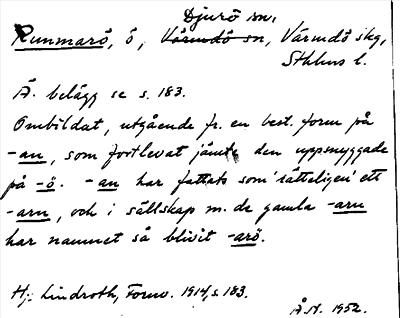 Djurö sn,
Runmarö, ö, Värmdö sn, Värmdö skg,
Sthlms l.
Ä. belägg se s. 183.
Ombildat, utgående fr. en best. form på
-an, som fortlevat jämte den uppsnyggade
på -ö. -an har fattats som 'rätteligen' ett
-arn, och i sällskap m. de gamla -arn
har namnet så blivit -arö.
Hj. Lindroth, Fornv. 1914, s. 183.
Å.st. 1952.